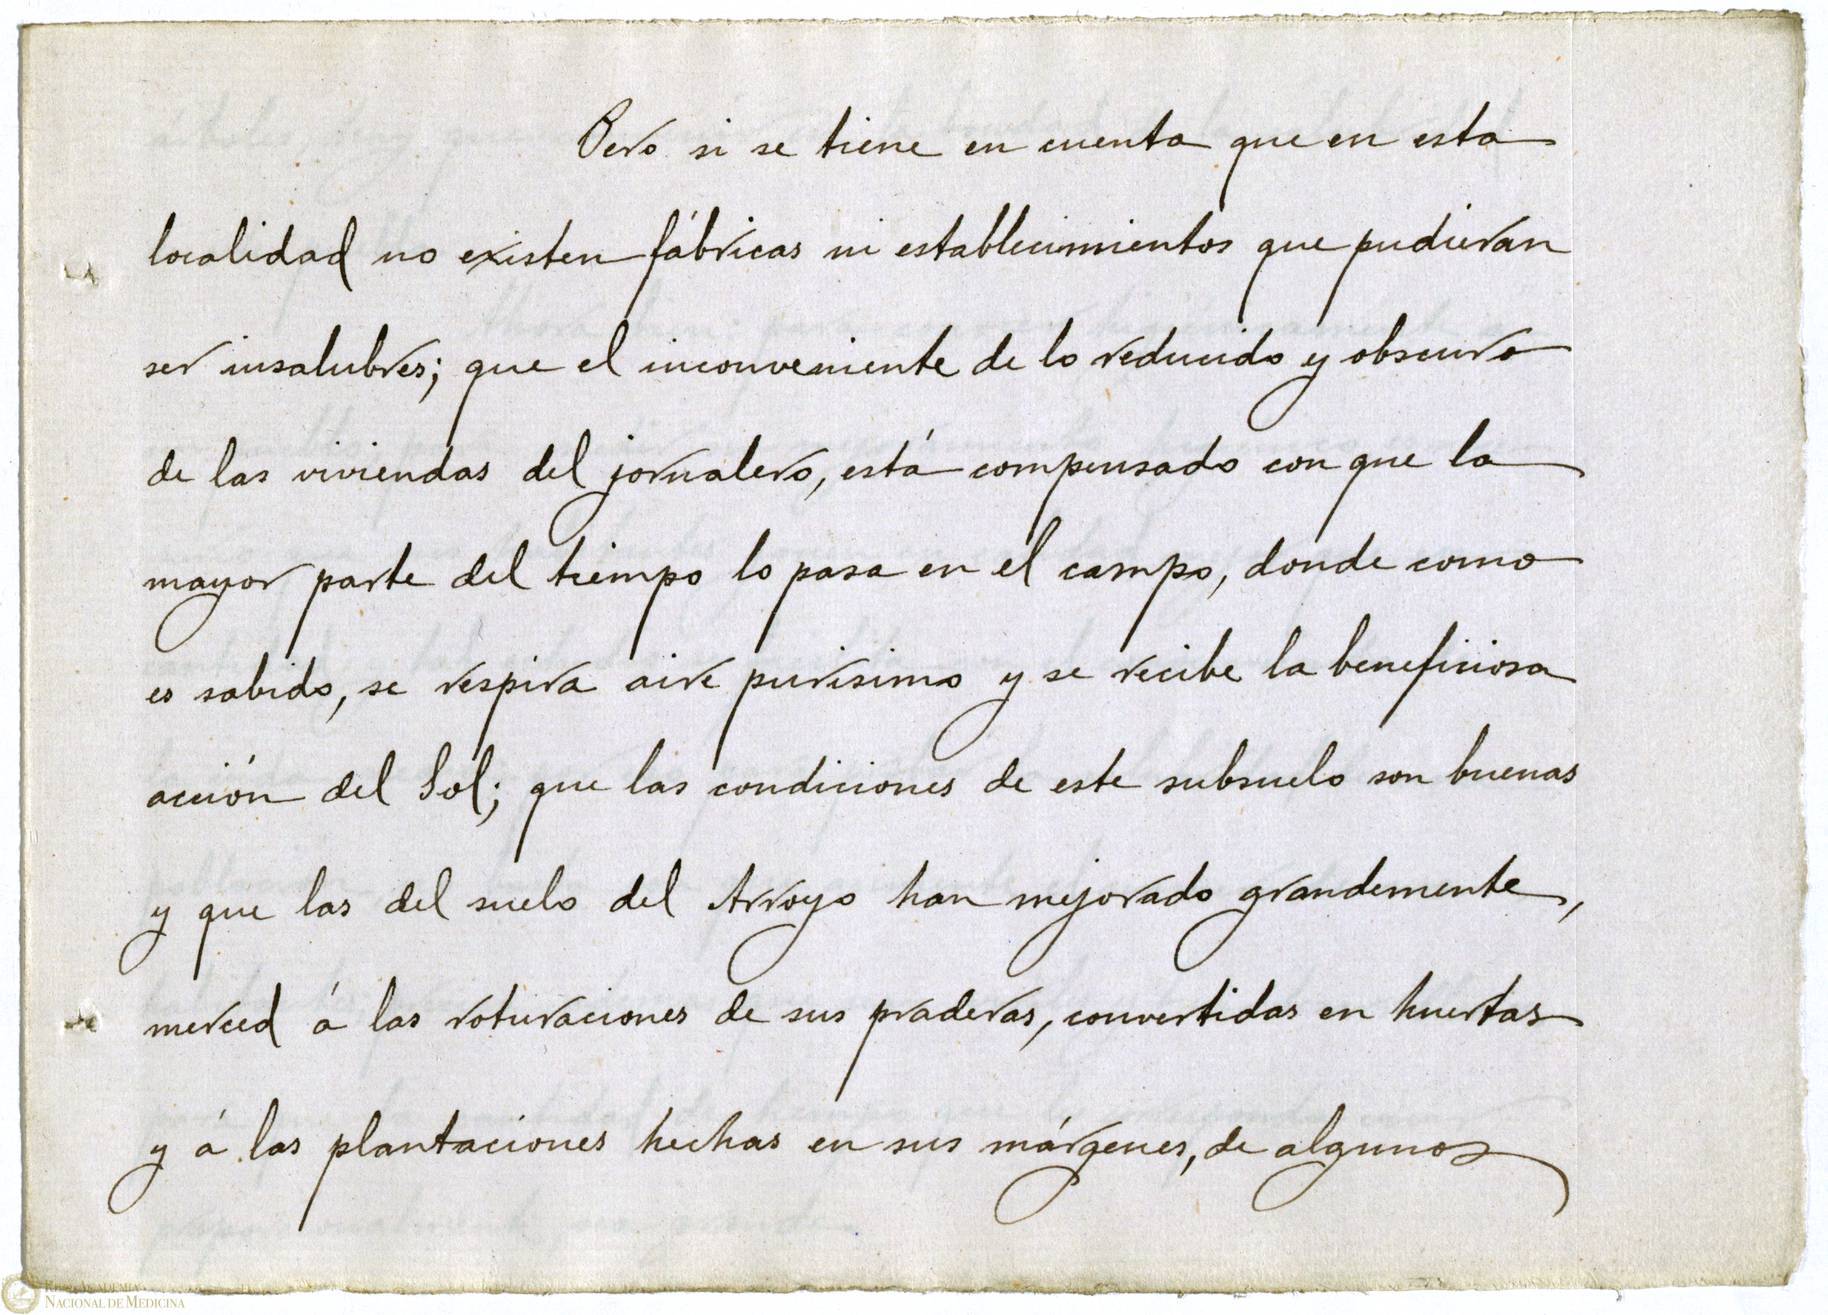 Pero si se tiene en cuenta que en esta
localidad no existen fábricas ni establecimientos que pudieran
ser insalubres; que el inconveniente de lo reducido y obscuro
de las viviendas del jornalero, está compensado con que la
mayor parte del tiempo lo pasa en el campo, donde como
es sabido, se respira aire purísimo y se recibe la beneficiosa
acción del Sol; que las condiciones de este subsuelo son buenas
y que las del suelo del Arroyo han mejorado grandemente,
merced á las roturaciones de sus praderas, convertidas en huertas
y á las plantaciones hechas en sus márgenes, de algunos
REAL ACADEMIA
NACIONAL DE MEDICINA